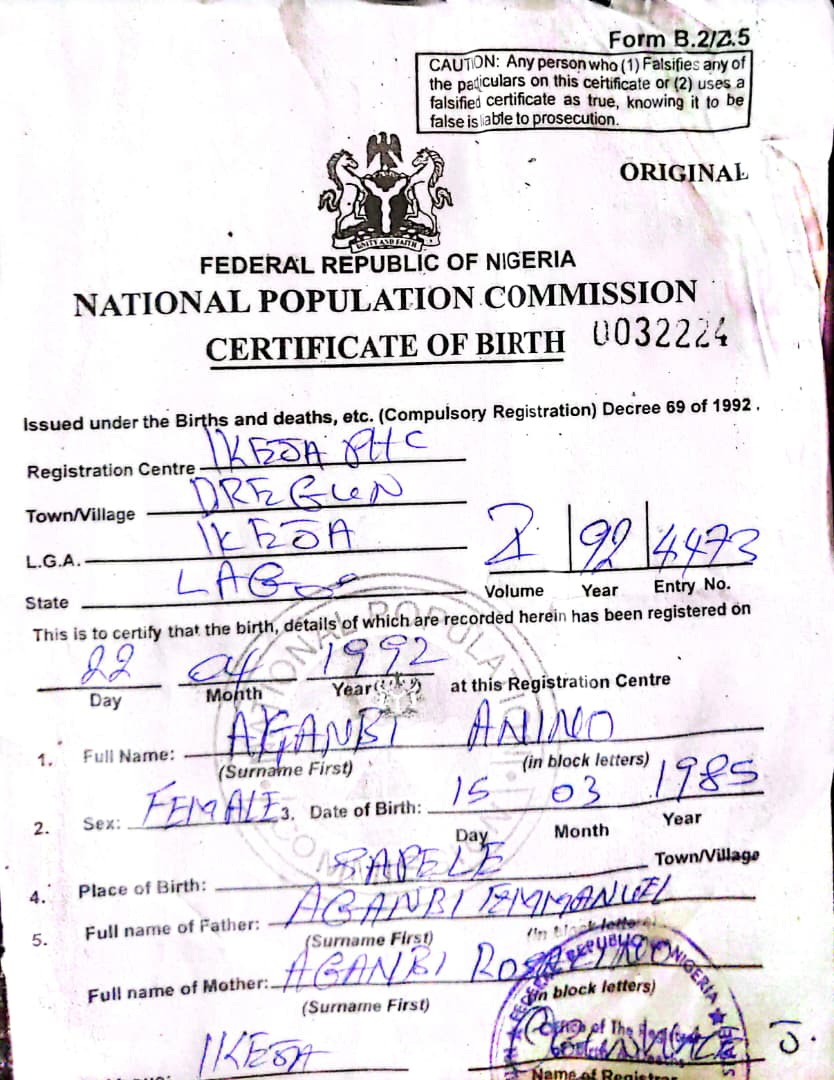 Form B.2/Z.5
CAUTION: Any person who (1) Falsifies any of
the particulars on this certificate or (2) uses a
falsified certificate as true, knowing it to be
false is liable to prosecution.
ORIGINAL
UNITY AND FAITH
FEDERAL REPUBLIC OF NIGERIA
NATIONAL POPULATION COMMISSION
CERTIFICATE OF BIRTH 0032224
Issued under the Births and deaths, etc. (Compulsory Registration) Decree 69 of 1992.
Registration Centre IKEJA PHC
Town/Village OREGUN
L.G.A. IKEJA
State LAGOS
I 92 4473
Volume Year Entry No.
This is to certify that the birth, details of which are recorded herein has been registered on
22 04 1992
Day Month Year at this Registration Centre
1. Full Name: AGANBI ANINO
(Surname First) (in block letters)
2. Sex: FEMALE 3. Date of Birth: 15 03 1985
Day Month Year
4. Place of Birth: SAPELE Town/Village
5. Full name of Father: AGANBI EMMANUEL
(Surname First) (In block letters)
Full name of Mother: AGANBI
(Surname First) (in block letters)
IKEJA
J.
Name of Registrar